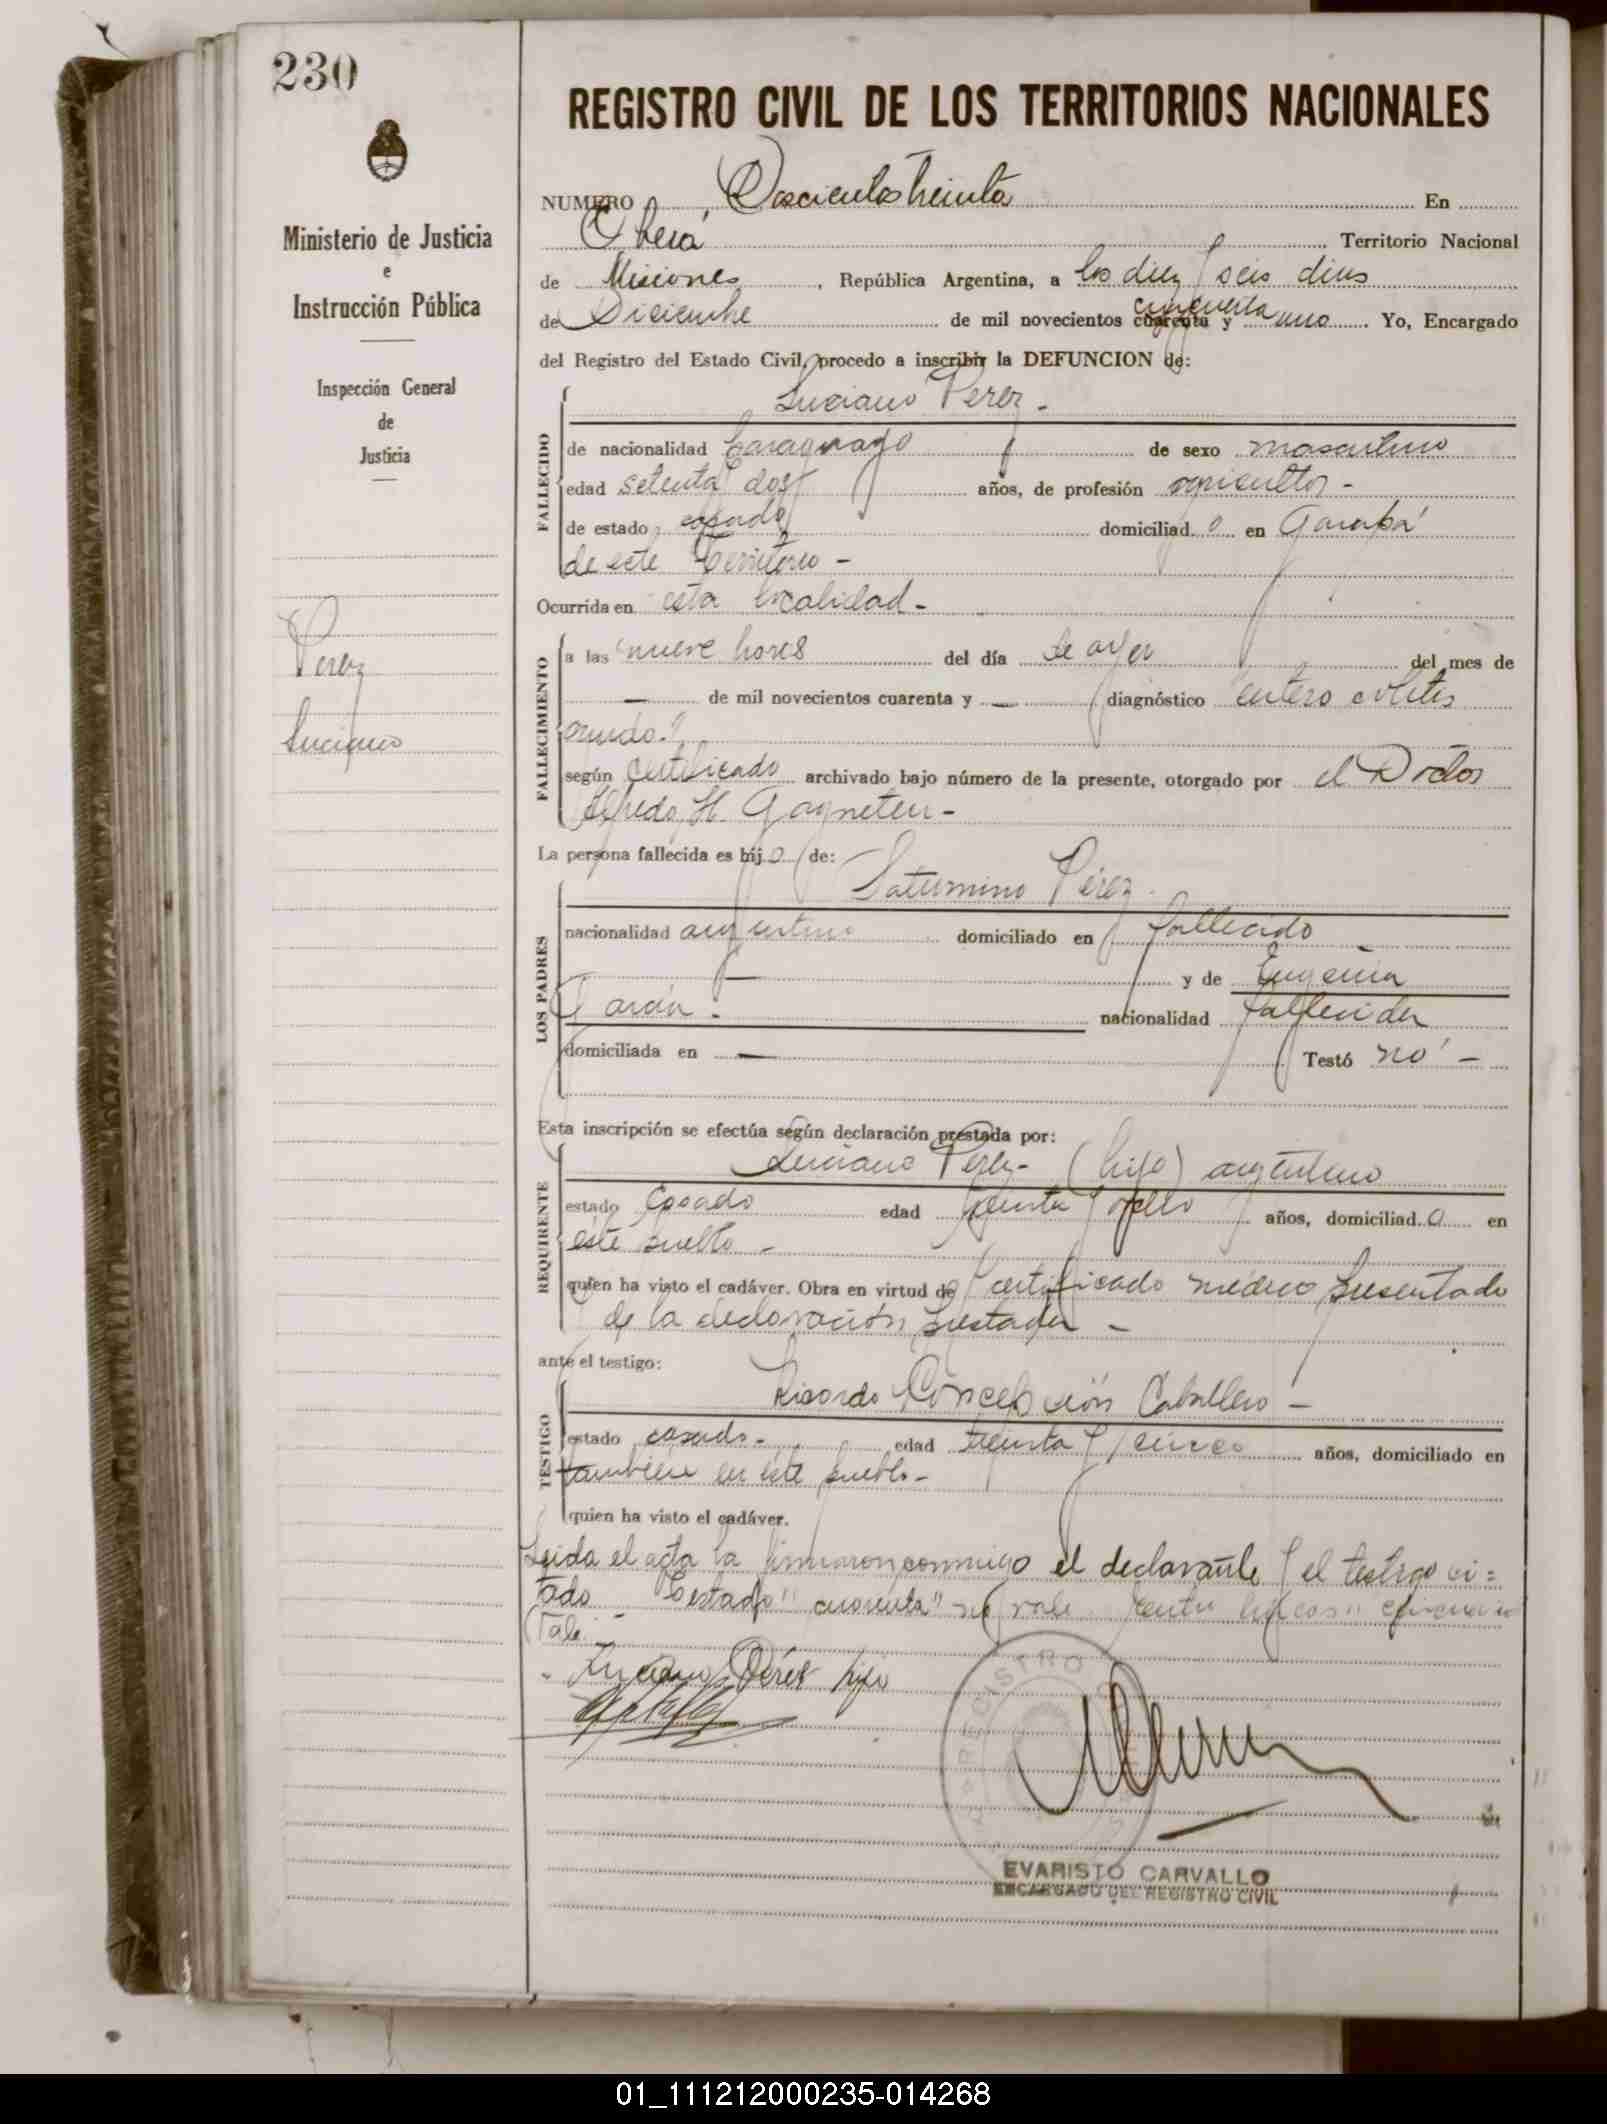 230
Ministerio de Justicia
e
Instrucción Pública
Inspección General
de
Justicia
Perez
Luciano
REGISTRO CIVIL DE LOS TERRITORIOS NACIONALES
NUMERO Doscientos treinta En
Oberá Territorio Nacional
de Misiones, República Argentina, a los diez y seis dias
de Diciembre de mil novecientos cuarenta cincuenta y uno Yo, Encargado
del Registro del Estado Civil, procedo a inscribir la DEFUNCION de:
FALLECIDO
Luciano Perez -
de nacionalidad Paraguayo de sexo masculino
edad setenta y dos años, de profesión agricultor -
de estado casado domiciliado en Garupá
de este Territorio -
Ocurrida en esta localidad -
FALLECIMIENTO
a las nueve horas del día de ayer del mes de
— de mil novecientos cuarenta y — diagnóstico "entero colitis
aguda."
según certificado archivado bajo número de la presente, otorgado por el Doctor
Alfredo H. Gagneten -
La persona fallecida es hijo de:
LOS PADRES
Saturnino Pérez
nacionalidad argentino domiciliado en fallecido
— y de Eugenia
nacionalidad fallecida
domiciliada en — Testó no -
Esta inscripción se efectúa según declaración prestada por:
REQUIRENTE
Luciano Perez - (hijo) argentino
estado casado edad treinta y ocho años, domiciliado en
éste pueblo -
quien ha visto el cadáver. Obra en virtud de certificado médico presentado
y de la declaración prestada -
ante el testigo:
TESTIGO
Ricardo Concepción Caballero -
estado casado - edad treinta y cinco años, domiciliado en
también en éste pueblo -
quien ha visto el cadáver.
Leida el acta la firmaron conmigo el declarante y el testigo ci=
tado - Testado "cuarenta" no vale entre líneas "cincuenta"
Vale. -
Luciano Pérez hijo
REGISTRO
EVARISTO CARVALLO
ENCARGADO DEL REGISTRO CIVIL
01_111212000235-014268